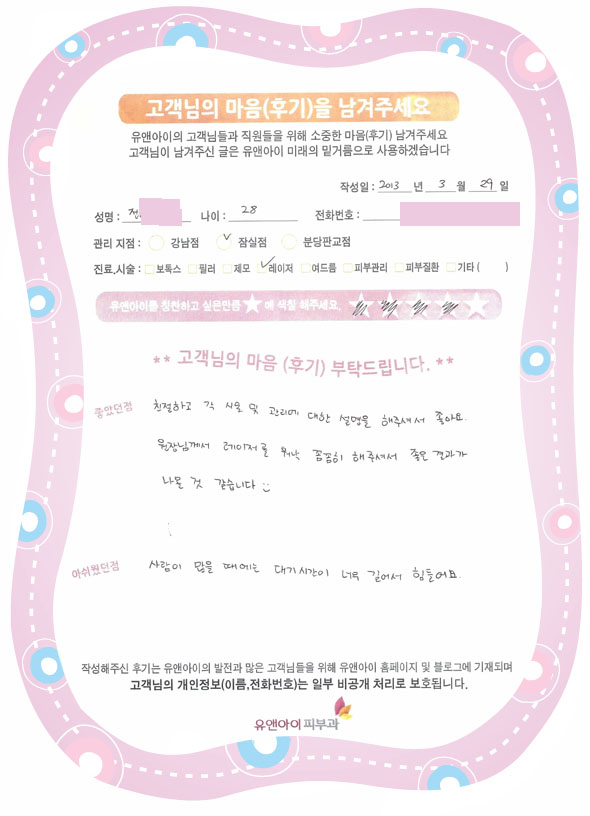 고객님의 마음(후기)을 남겨주세요
유앤아이의 고객님들과 직원들을 위해 소중한 마음(후기) 남겨주세요
고객님이 남겨주신 글은 유앤아이 미래의 밑거름으로 사용하겠습니다
작성일 : 2013 년 3 월 29 일
성명 : 나이 : 28 전화번호 :
관리 지점 : 강남점 잠실점 분당판교점
진료,시술 : 보톡스 필러 제모 레이저 여드름 피부관리 피부질환 기타 ( )
유앤아이를 칭찬하고 싶은만큼 ★ 에 색칠 해주세요 ★★★★★
** 고객님의 마음 (후기) 부탁드립니다. **
좋았던점 친절하고 각 시술 및 관리에 대한 설명을 해주셔서 좋아요.
원장님께서 레이저를 워낙 꼼꼼히 해주셔서 좋은 결과가
나온 것 같습니다 :)
아쉬웠던점 사람이 많을 때에는 대기시간이 너무 길어서 힘들어요.
작성해주신 후기는 유앤아이의 발전과 많은 고객님들을 위해 유앤아이 홈페이지 및 블로그에 기재되며
고객님의 개인정보(이름,전화번호)는 일부 비공개 처리로 보호됩니다.
유앤아이 피부과